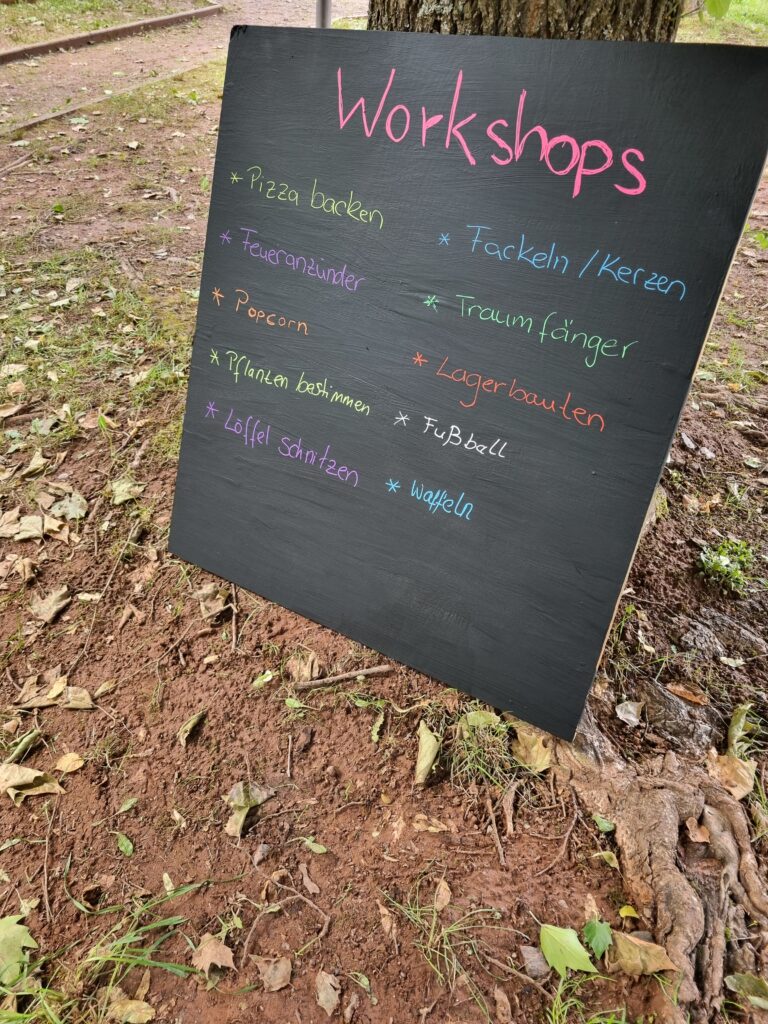 Workshops
* Pizza backen
* Feueranzünder
* Popcorn
* Pflanzen bestimmen
* Löffel schnitzen
* Fackeln / Kerzen
* Traumfänger
* Lagerbauten
* Fußball
* Waffeln